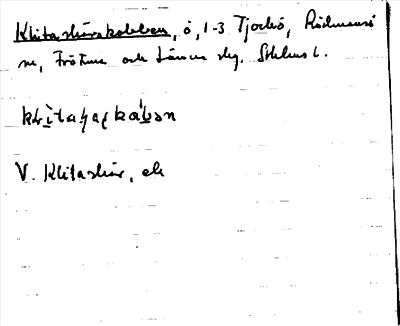 Klitaskärskobben, ö, 1-3 Tjockö, Rådmansö
sn, Frötuna och Länna skg. Sthlms l.
klìtaʂæʂkåb̀ən
V. Klitaskär, ek